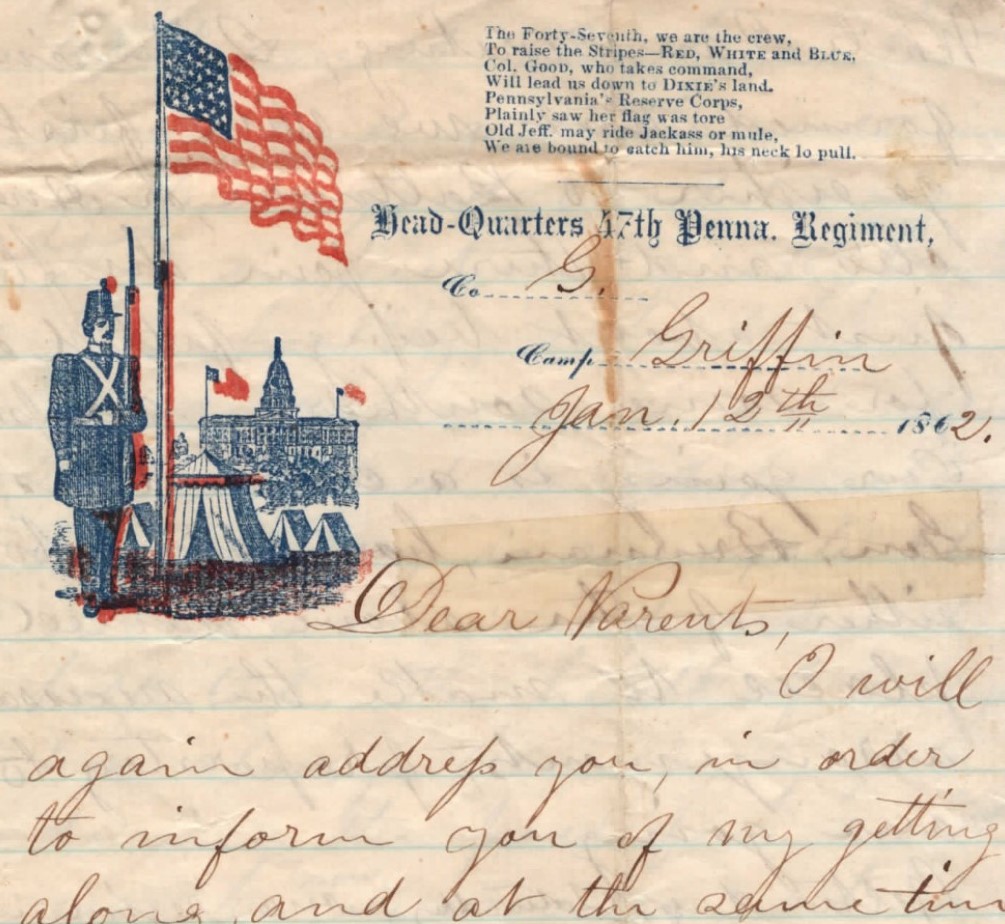 The Forty-Seventh, we are the crew,
To raise the Stripes—RED, WHITE and BLUE.
Col. GOOD, who takes command,
Will lead us down to DIXIE's land.
Pennsylvania's Reserve Corps,
Plainly saw her flag was tore
Old Jeff. may ride Jackass or mule,
We are bound to catch him, his neck to pull.
Head-Quarters 47th Penna. Regiment,
Co G.
Camp Griffin
Jan. 12th 1862.
Dear Parents,
I will
again address you, in order
to inform you of my getting
along, and at the same time